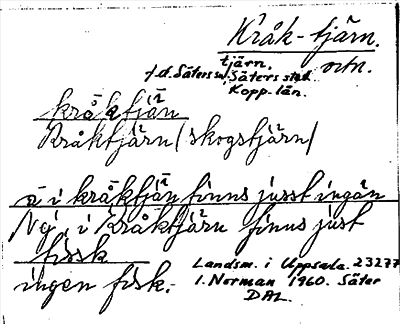 Kråk-tjärn.
tjärn. ortn.
f.d. Säters sn, Säters stad.
Kopp-län.
kråktjän
Kråktjärn (skogstjärn)
i kråktjän finns jusst ingän
Nej, i Kråktjärn finns just
fissk
ingen fisk.
Landsm. i Uppsala. 23277
I. Norman 1960. Säter
DAL.